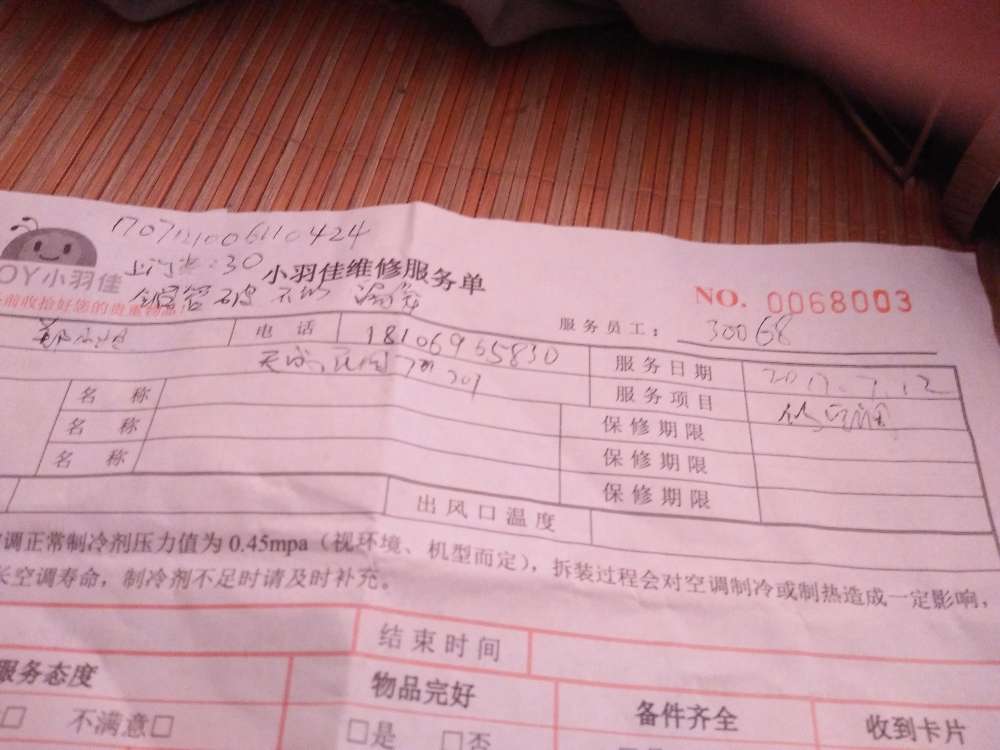 上门费:30
OY小羽佳 小羽佳维修服务单
前收拾好您的贵重物品
NO. 0068003
服务员工: 30068
电 话 18106965830 服务日期 2017.7.12
名 称 服务项目
名 称 保修期限
名 称 保修期限
保修期限
出风口温度
调正常制冷剂压力值为0.45mpa(视环境、机型而定),拆装过程会对空调制冷或制热造成一定影响,
长空调寿命,制冷剂不足时请及时补充。
结束时间
服务态度 物品完好 备件齐全 收到卡片
□ 不满意□ □是 □否